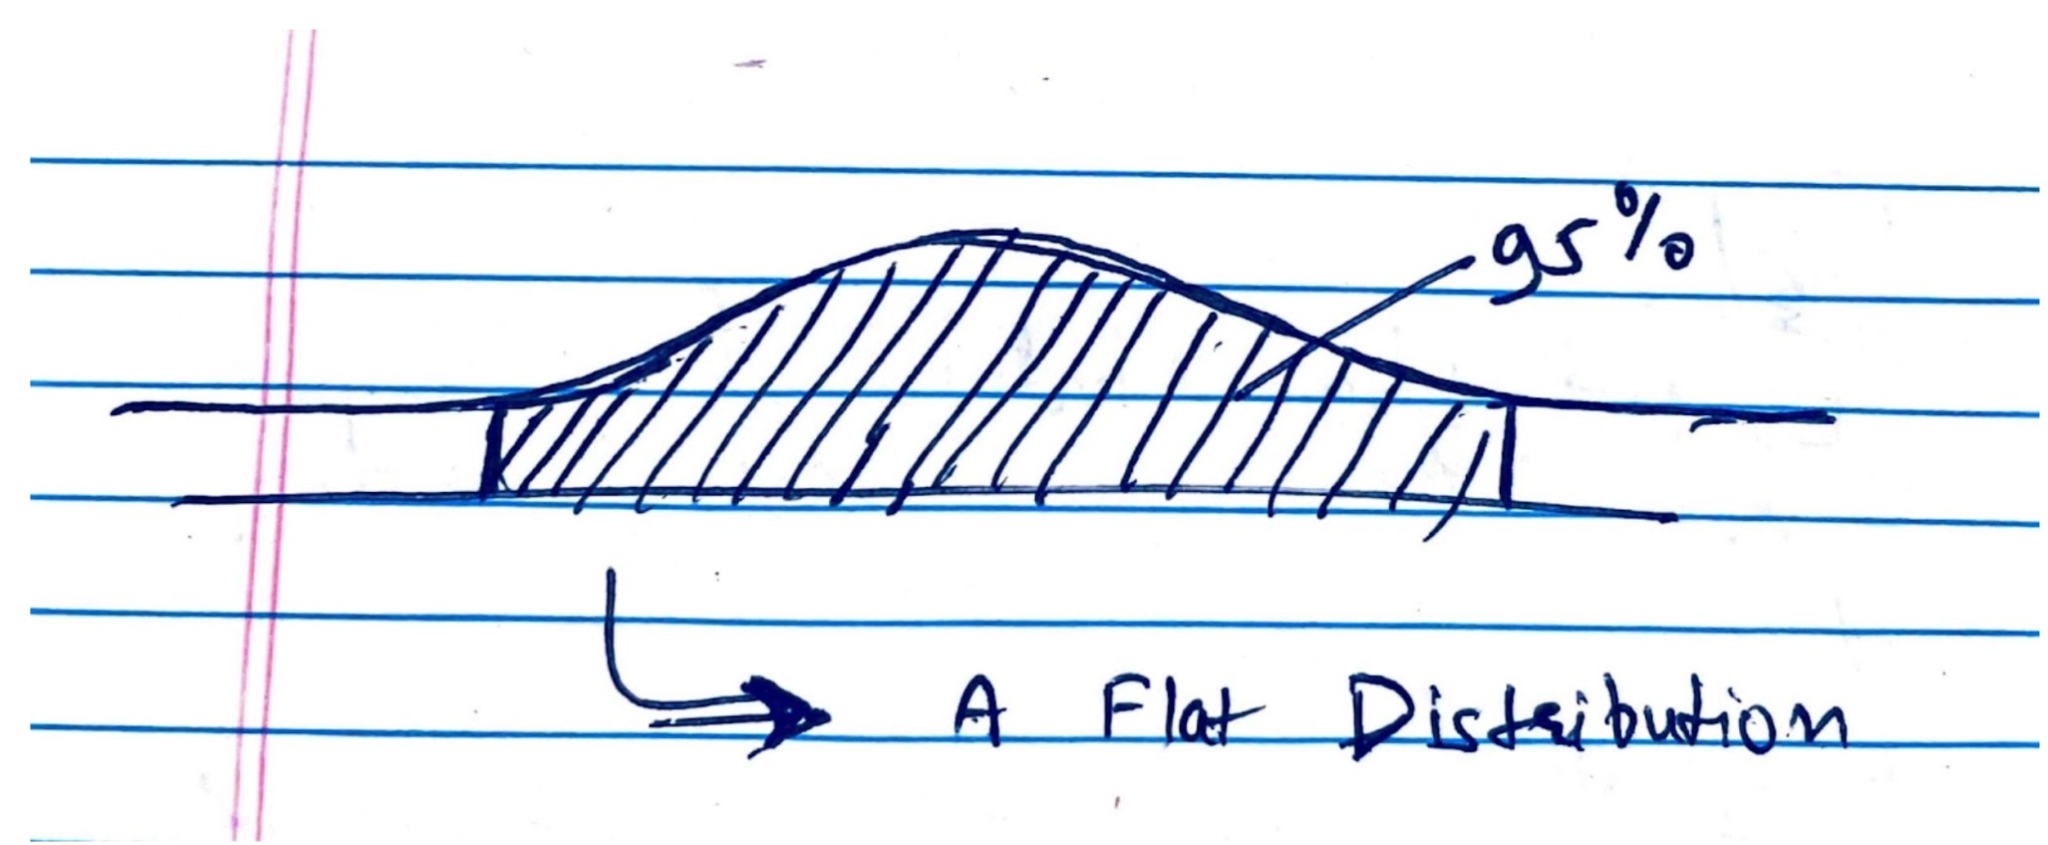 95%
A Flat Distribution